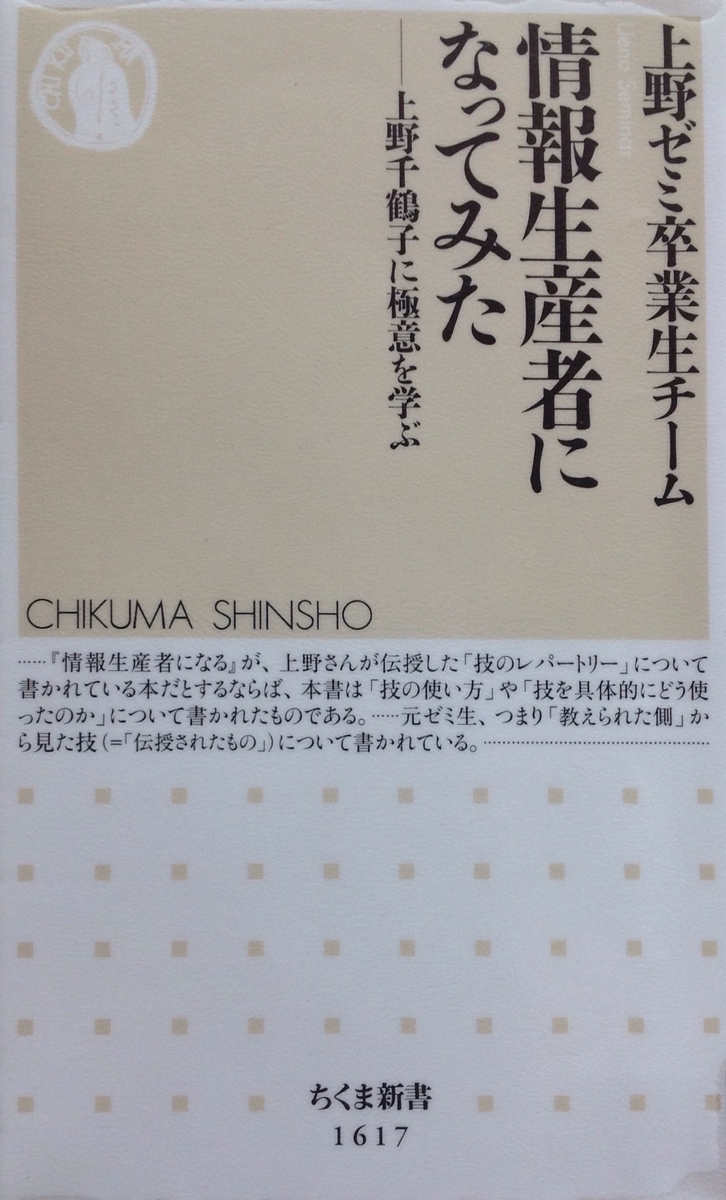 上野ゼミ卒業生チーム
Ueno Seminar
情報生産者に
なってみた
──上野千鶴子に極意を学ぶ
CHIKUMA SHINSHO
……『情報生産者になる』が、上野さんが伝授した「技のレパートリー」について
書かれている本だとするならば、本書は「技の使い方」や「技を具体的にどう使
ったのか」について書かれたものである。……元ゼミ生、つまり「教えられた側」か
ら見た技(=「伝授されたもの」)について書かれている。……………………………
ちくま新書
1617